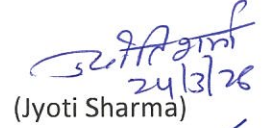 ज्योति शर्मा
24/3/26
(Jyoti Sharma)